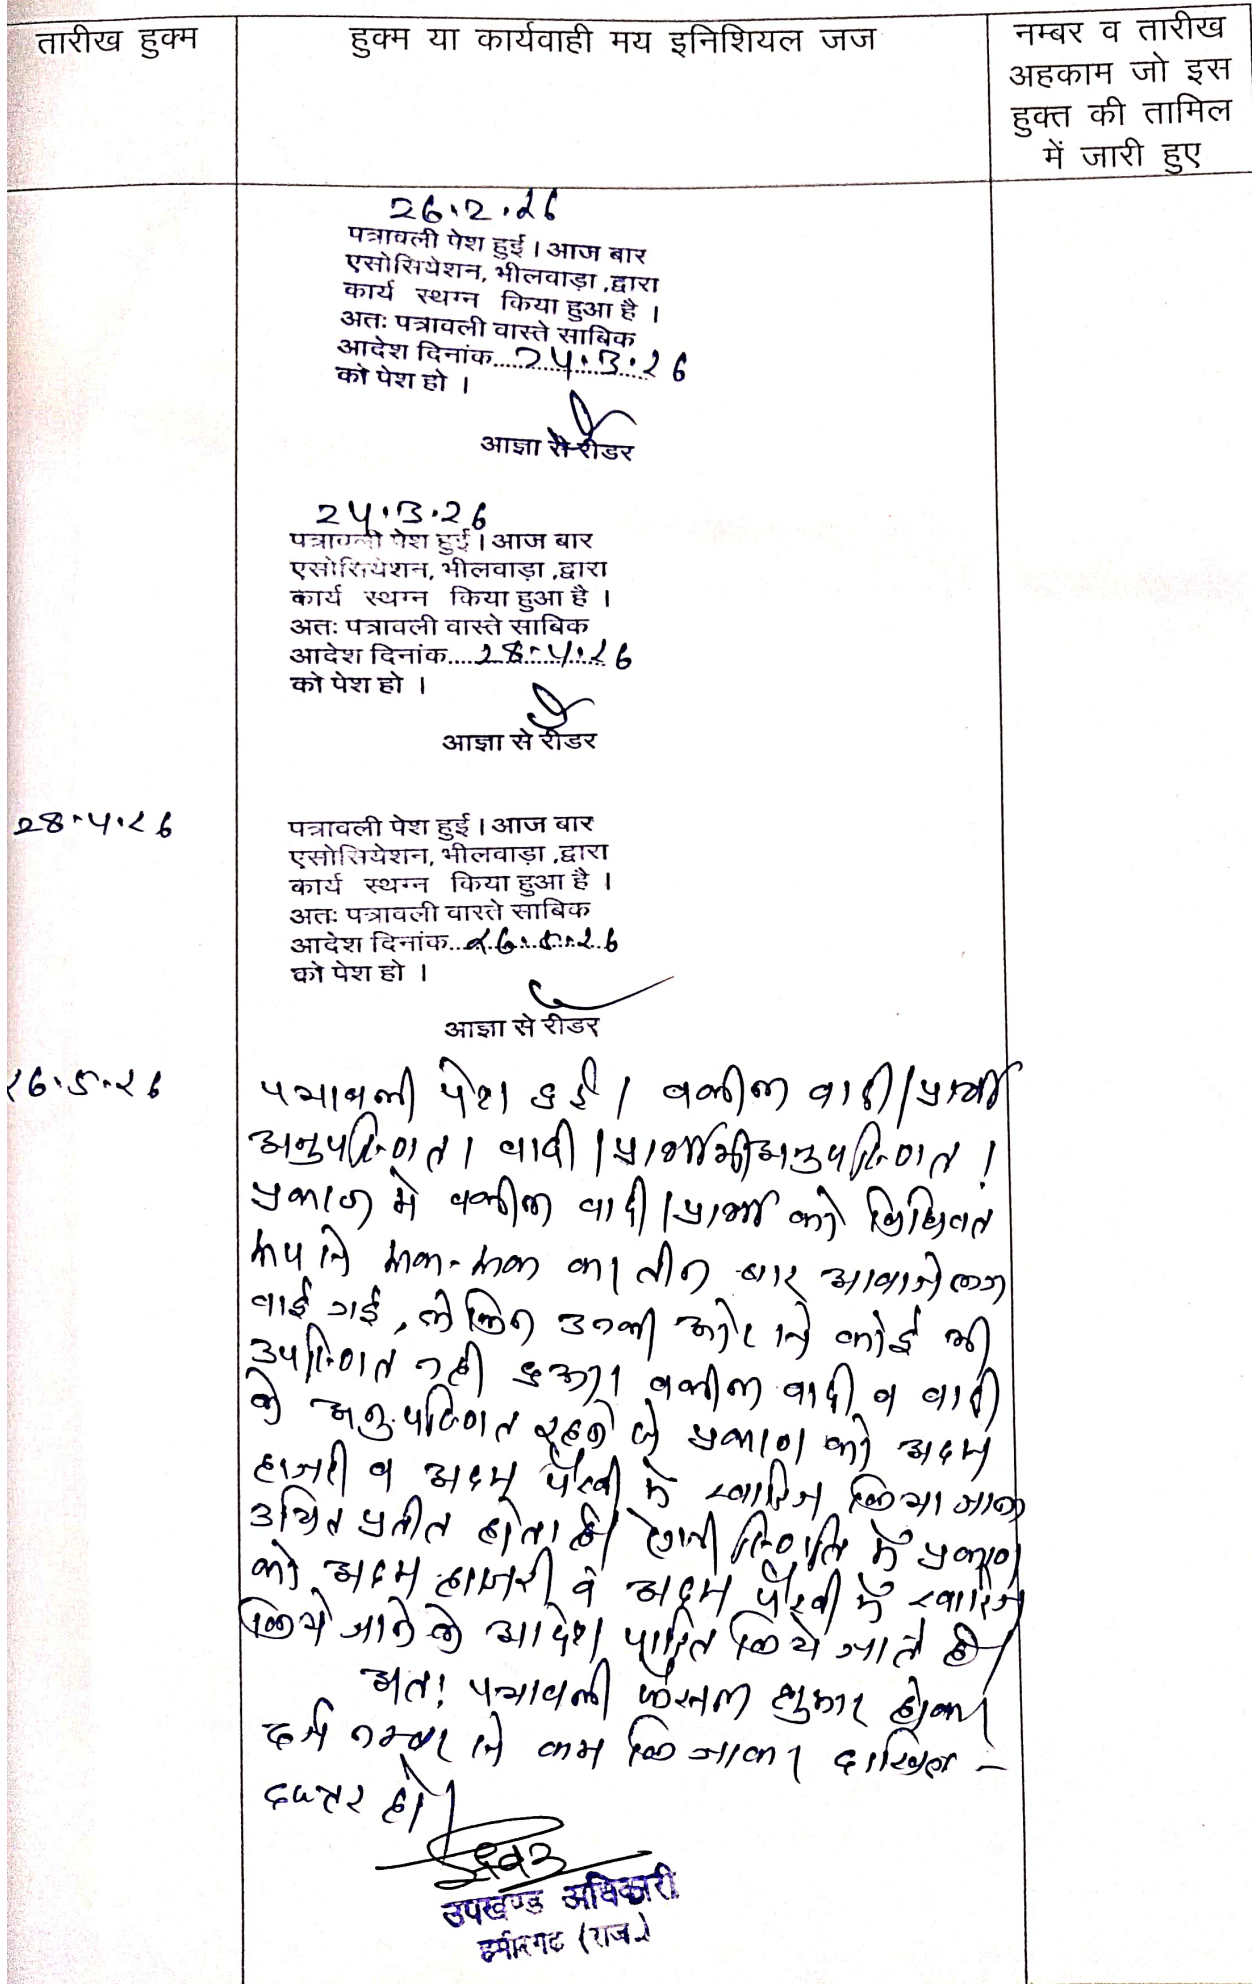 तारीख हुक्म
हुक्म या कार्यवाही मय इनिशियल जज
नम्बर व तारीख
अहकाम जो इस
हुक्त की तामिल
में जारी हुए
26.2.26
पत्रावली पेश हुई । आज बार
एसोसियेशन, भीलवाड़ा ,द्वारा
कार्य स्थग्न किया हुआ है ।
अतः पत्रावली वास्ते साबिक
आदेश दिनांक.....24.3.26
को पेश हो ।
आज्ञा से रीडर
24.3.26
पत्रावली पेश हुई । आज बार
एसोसियेशन, भीलवाड़ा ,द्वारा
कार्य स्थग्न किया हुआ है ।
अतः पत्रावली वास्ते साबिक
आदेश दिनांक.....28.4.26
को पेश हो ।
आज्ञा से रीडर
28.4.26
पत्रावली पेश हुई । आज बार
एसोसियेशन, भीलवाड़ा ,द्वारा
कार्य स्थग्न किया हुआ है ।
अतः पत्रावली वास्ते साबिक
आदेश दिनांक...26.5.26
को पेश हो ।
आज्ञा से रीडर
26.5.26
पत्रावली पेश हुई । वकील वादी/प्रार्थी
अनुपस्थित। वादी/प्रार्थी भी अनुपस्थित।
प्रकरण मे वकील वादी/प्रार्थी को विधिवत
रूप से रूक-रूक कर तीन बार आवाजे लग
वाई गई, लेकिन उनकी ओर से कोई भी
उपस्थित नही हुआ। वकील वादी व वादी
के अनुपस्थित रहने से प्रकरण को अदम
हाजरी व अदम पैरवी मे खारिज किया जाना
उचित प्रतीत होता है। ऐसी स्थिति में प्रकरण
को अदम हाजरी व अदम पैरवी में खारिज
किये जाने के आदेश पारित किये जाते है।
अतः पत्रावली फैसल शुमार होकर
दर्ज नम्बर से कम कि जाकर दाखिल -
दफ्तर हो।
उपखण्ड अधिकारी
हमीरगढ (राज.)